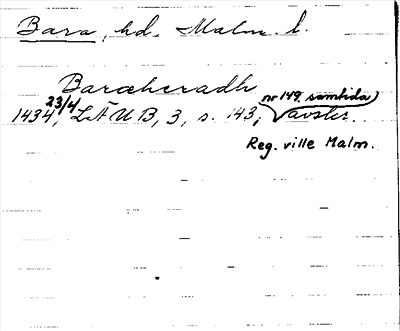 Bara, hd. Malm. l.
Baræheradh
nr 149 samtida
1434 23/4, LÄUB, 3, s. 143, avskr.
Reg. ville Malm.